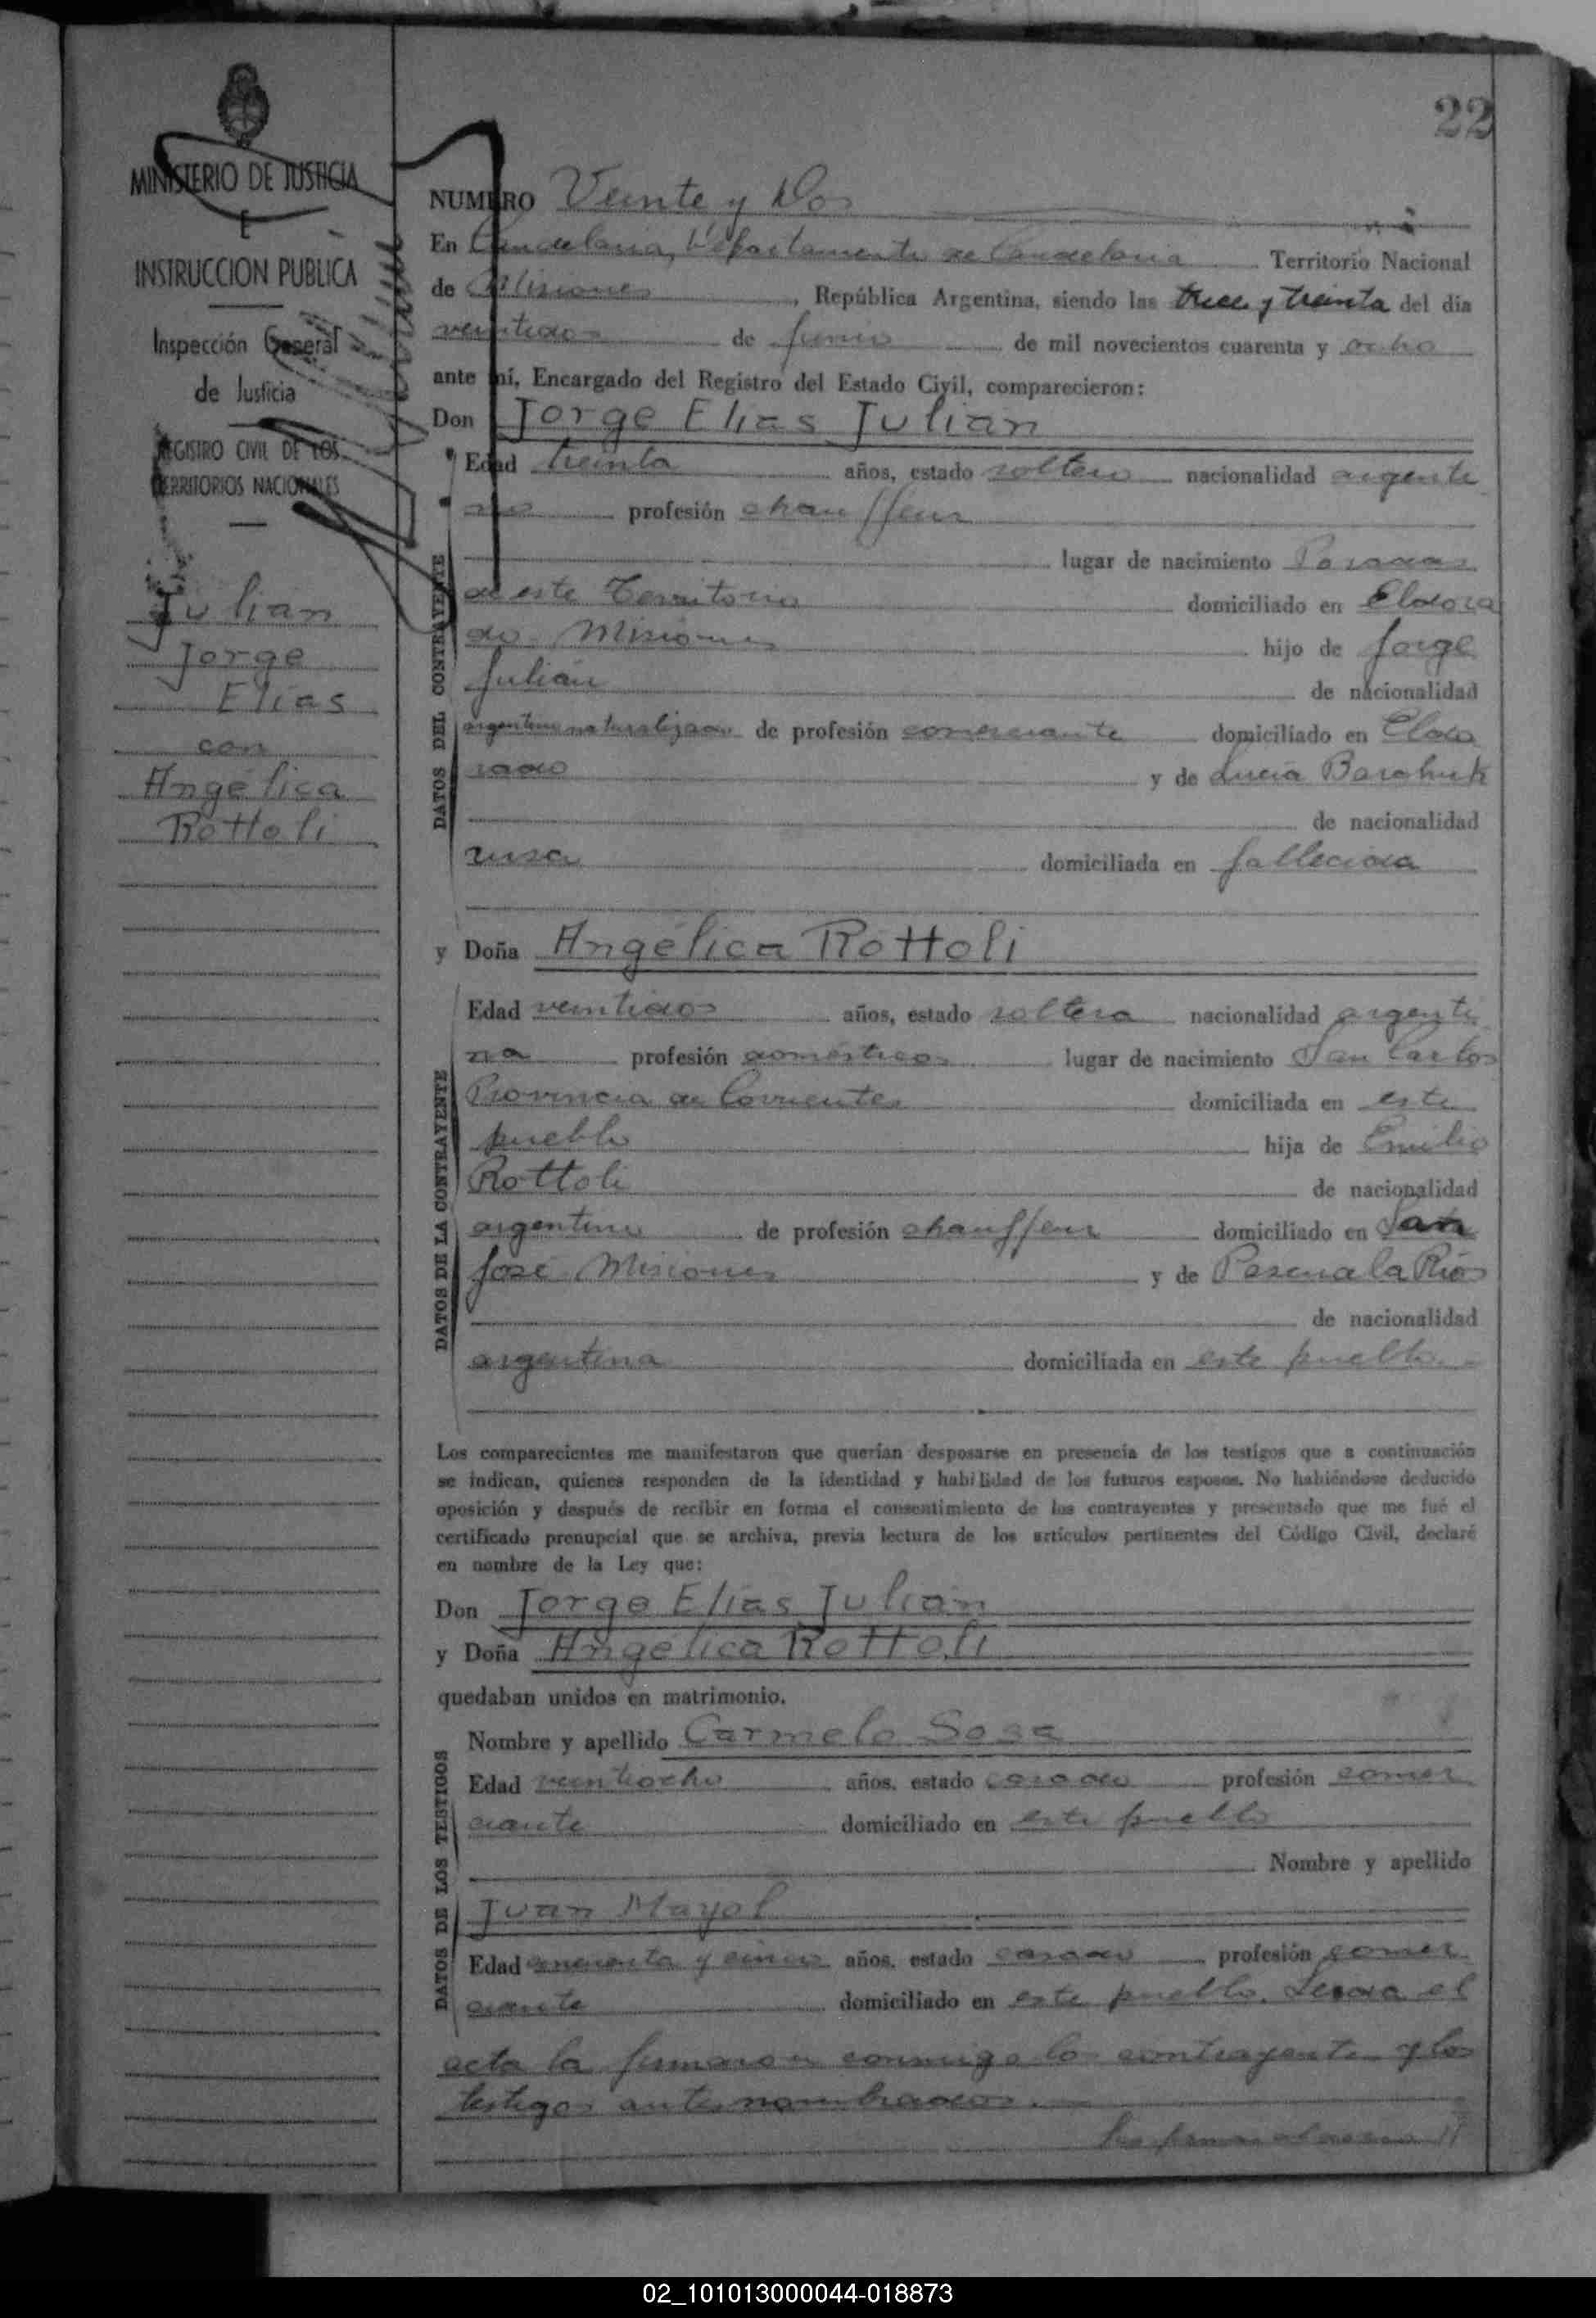 22
MINISTERIO DE JUSTICIA
E
INSTRUCCION PUBLICA
Inspección General
de Justicia
REGISTRO CIVIL DE LOS
TERRITORIOS NACIONALES
Julián
Jorge
Elías
con
Angélica
Rottoli
NUMERO Veinte y Dos
En Candelaria, Departamento de Candelaria Territorio Nacional
de Misiones, República Argentina, siendo las trece y treinta del dia
veintidos de junio de mil novecientos cuarenta y ocho
ante mí, Encargado del Registro del Estado Civil, comparecieron:
Don Jorge Elías Julián
DATOS DEL CONTRAYENTE
Edad treinta años, estado soltero nacionalidad argenti
no profesión chauffeur
lugar de nacimiento Posadas
de este Territorio domiciliado en Eldora
do Misiones hijo de Jorge
Julián de nacionalidad
argentino naturalizado de profesión comerciante domiciliado en Eldo
rado y de Lucía Barchuk
de nacionalidad
rusa domiciliada en fallecida
y Doña Angélica Rottoli
DATOS DE LA CONTRAYENTE
Edad veintidos años, estado soltera nacionalidad argenti
na profesión domésticos lugar de nacimiento San Carlos
Provincia de Corrientes domiciliada en este
pueblo hija de Emilio
Rottoli de nacionalidad
argentino de profesión chauffeur domiciliado en San
José Misiones y de Pascuala Ríos
de nacionalidad
argentina domiciliada en este pueblo.
Los comparecientes me manifestaron que querían desposarse en presencia de los testigos que a continuación
se indican, quienes responden de la identidad y habilidad de los futuros esposos. No habiéndose deducido
oposición y después de recibir en forma el consentimiento de los contrayentes y presentado que me fué el
certificado prenupcial que se archiva, previa lectura de los artículos pertinentes del Código Civil, declaré
en nombre de la Ley que:
Don Jorge Elías Julián
y Doña Angélica Rottoli
quedaban unidos en matrimonio.
DATOS DE LOS TESTIGOS
Nombre y apellido Carmelo Sosa
Edad veintiocho años, estado casado profesión comer
ciante domiciliado en este pueblo
Nombre y apellido
Juan Mayol
Edad cincuenta y cinco años, estado casado profesión comer
ciante domiciliado en este pueblo. Leida el
acta la firmaron conmigo los contrayentes y los
testigos antes nombrados.
02_101013000044-018873